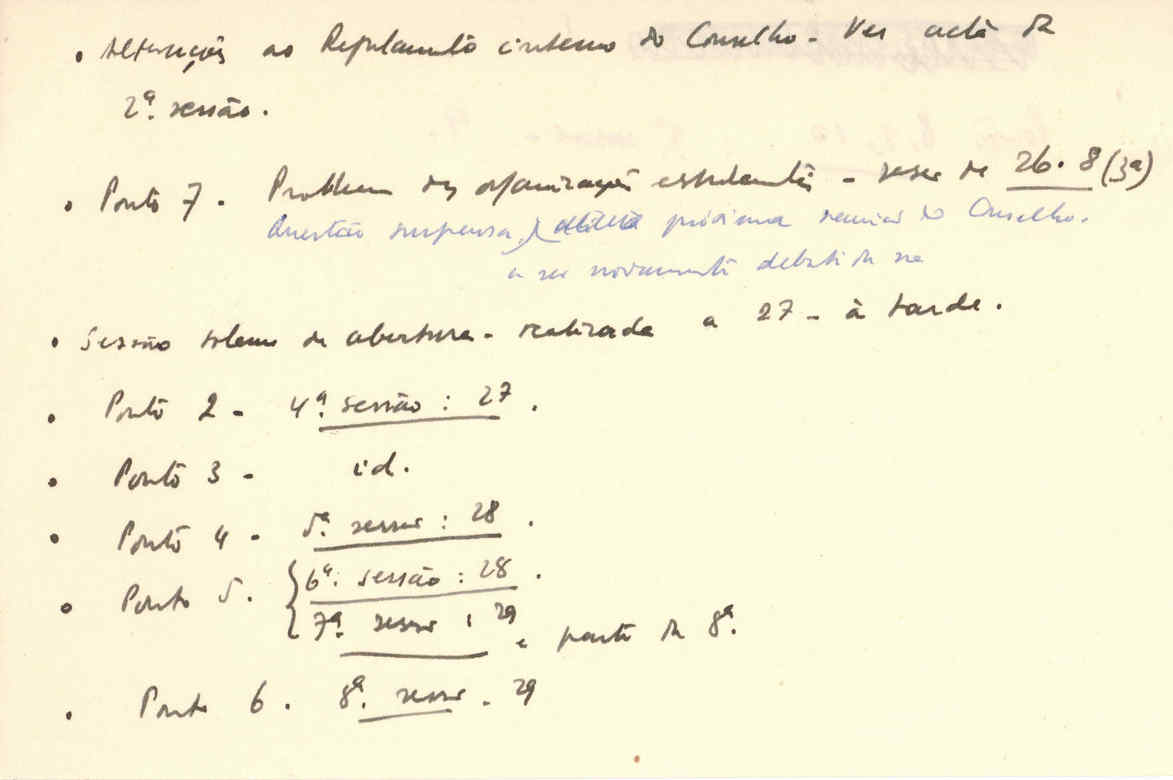 • Alterações ao Regulamento interno do Conselho - Ver acta da
2ª sessão.
• Ponto 7 - Problema das organizações estudantis - sessão de 26.8 (3ª)
Questão suspensa, a ser novamente debatida na próxima reunião do Conselho.
• Sessão solene de abertura - realizada a 27 - à tarde.
• Ponto 2 - 4ª sessão : 27.
• Ponto 3 - id.
• Ponto 4 - 5ª sessão : 28.
• Ponto 5. 6ª sessão : 28.
7ª sessão : 29 e parte da 8ª.
• Ponto 6. 8ª sessão - 29